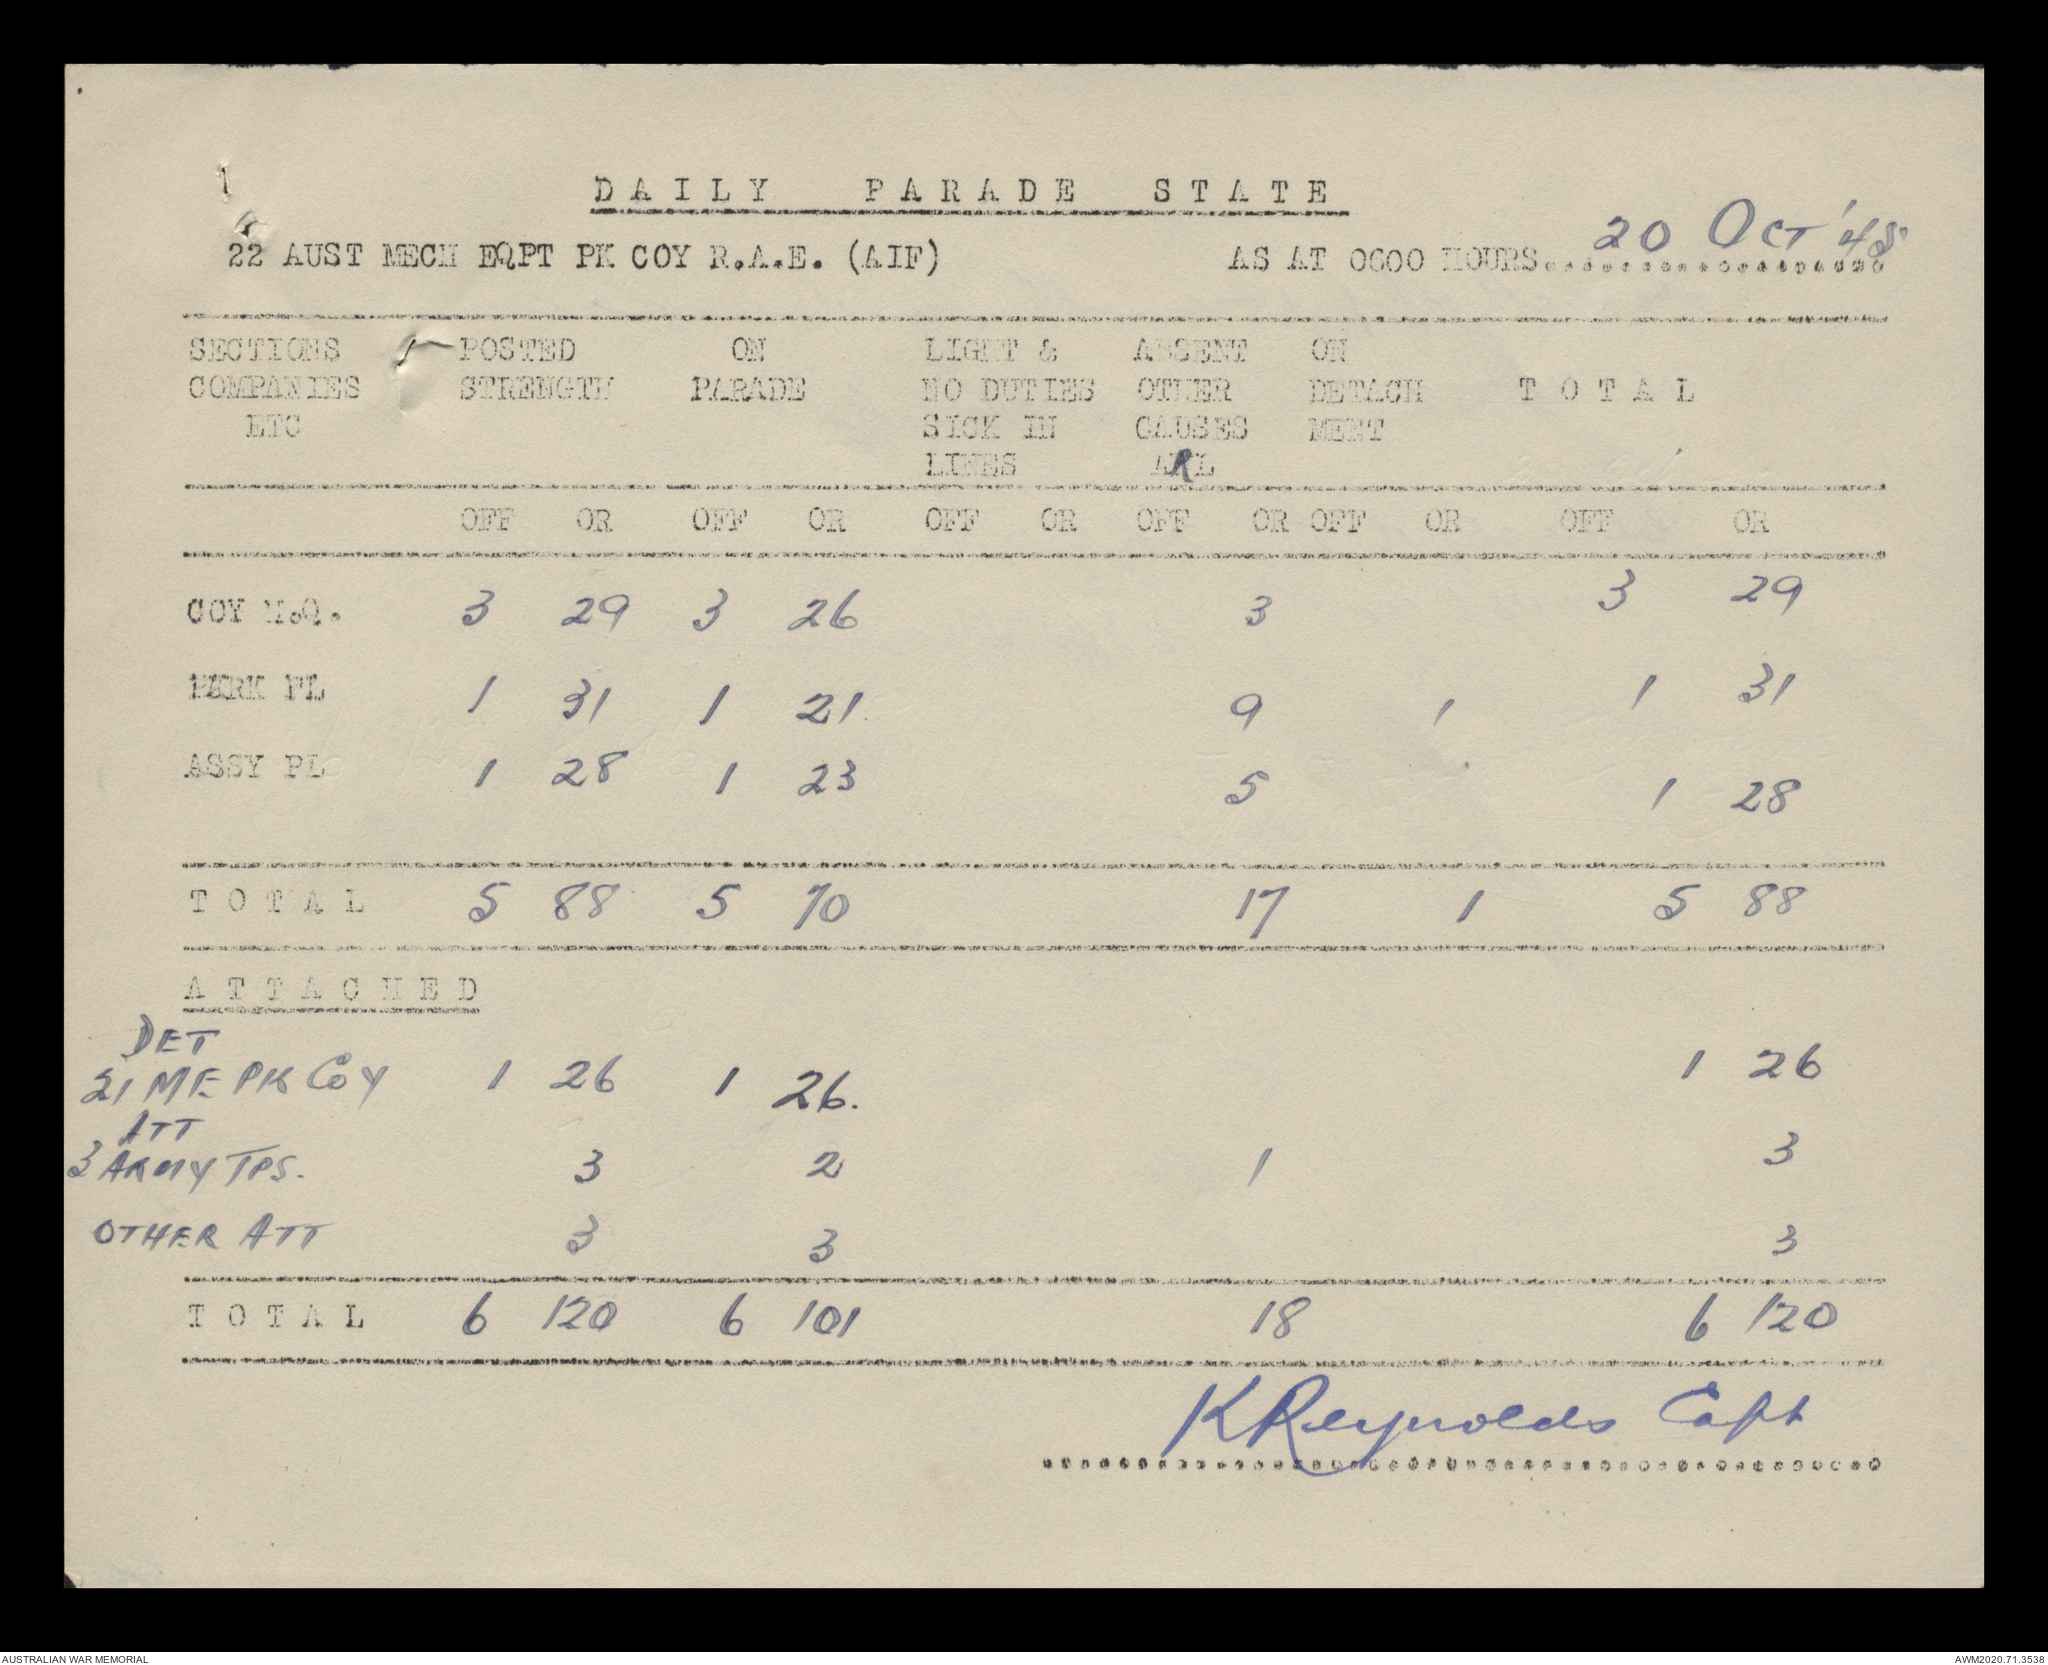 DAILY PARADE STATE
22 AUST MECH EQPT PK COY R.A.E. (AIF) AS AT 0600 HOURS 20 Oct '45
SECTIONS POSTED ON LIGHT & ABSENT ON
COMPANIES STRENGTH PARADE NO DUTIES OTHER DETACH TOTAL
ETC SICK IN CAUSES MENT
LINES ARL
OFF OR OFF OR OFF OR OFF OR OFF OR OFF OR
COY H.Q. 3 29 3 26 3 3 29
PARK PL 1 31 1 21 9 1 1 31
ASSY PL 1 28 1 23 5 1 28
TOTAL 5 88 5 70 17 1 5 88
ATTACHED
DET
21 ME PK COY 1 26 1 26. 1 26
ATT
3 ARMY TPS. 3 2 1 3
OTHER ATT 3 3 3
TOTAL 6 120 6 101 18 6 120
K Reynolds Capt
AUSTRALIAN WAR MEMORIAL AWM2020.71.3538